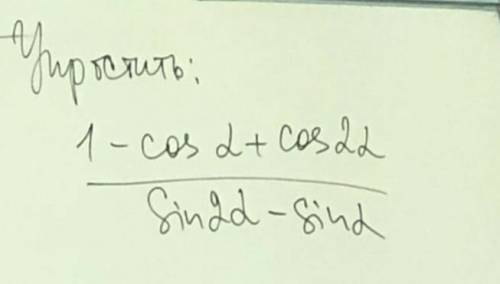 Упростить:
1 - cos α + cos 2α
sin 2α - sin α